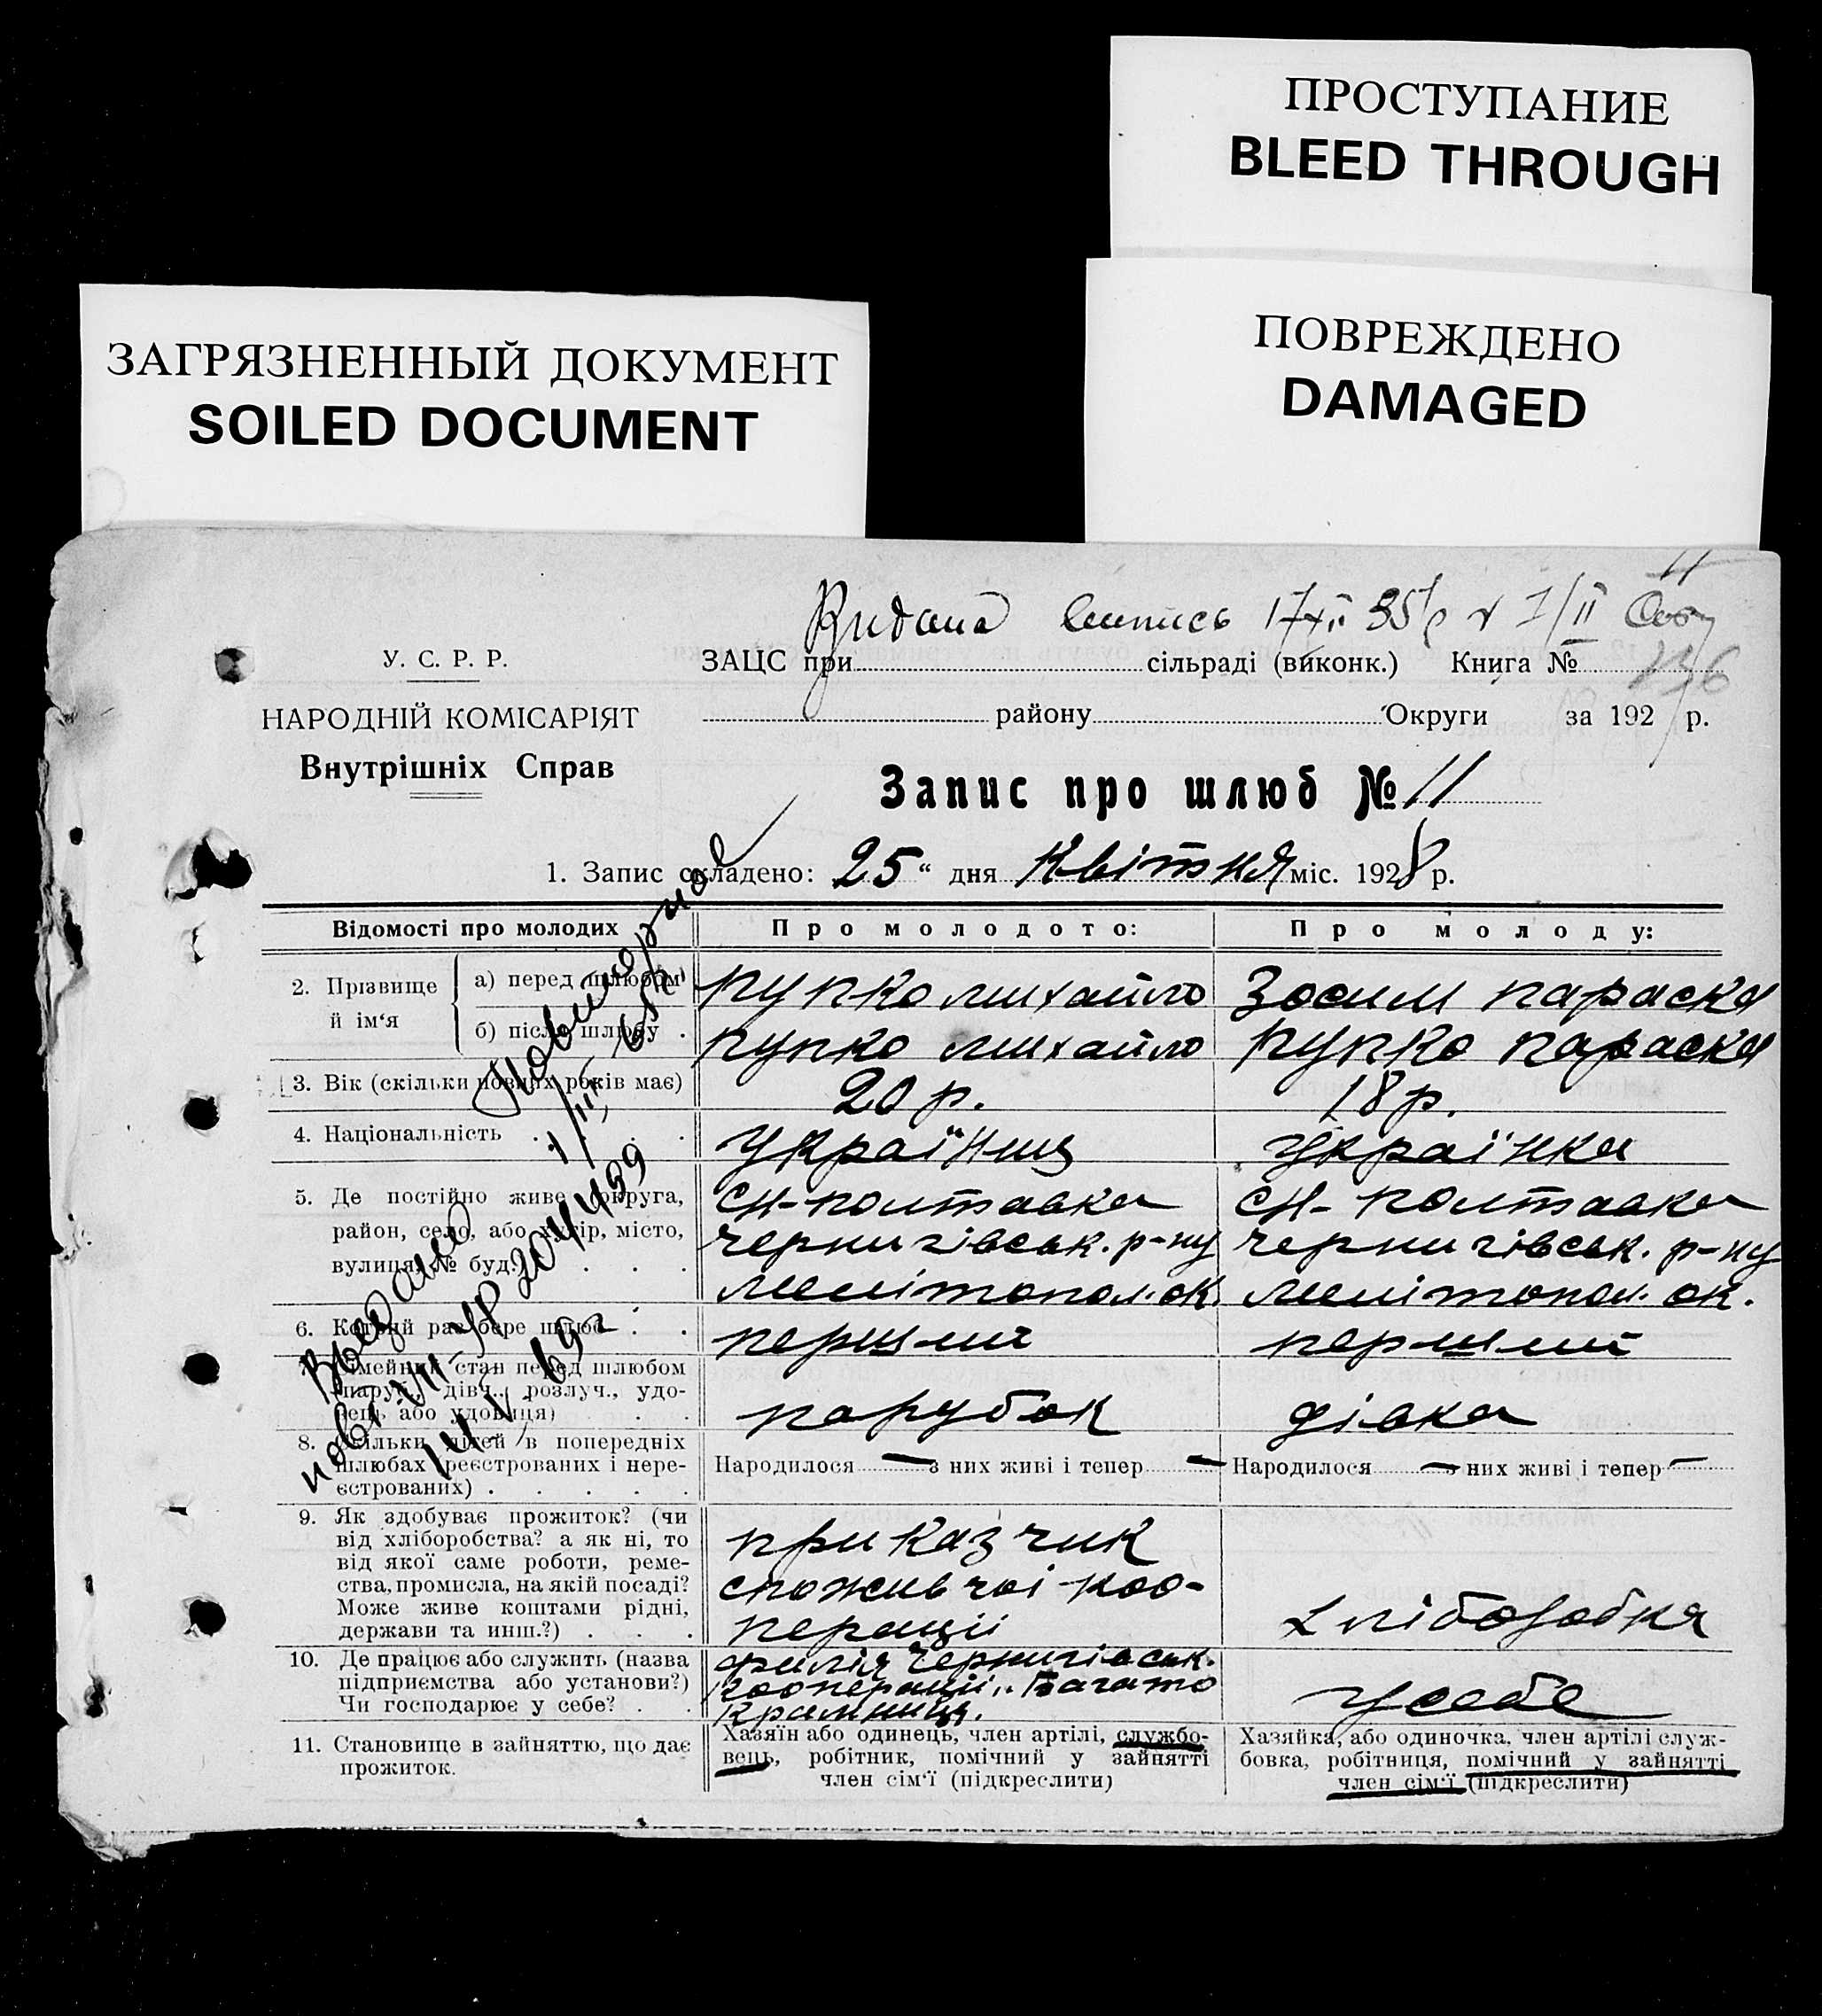 ПРОСТУПАНИЕ
BLEED THROUGH
ЗАГРЯЗНЕННЫЙ ДОКУМЕНТ
SOILED DOCUMENT
ПОВРЕЖДЕНО
DAMAGED
11
Видана 17/XII 35 р I/II
У. С. Р. Р.
НАРОДНІЙ КОМІСАРІЯТ
Внутрішніх Справ
ЗАЦС при сільраді (виконк.) Книга №
району Округи за 192 р.
Запис про шлюб № 11
1. Запис складено: 25 “ дня Квітня міс. 1928 р.
Відомості про молодих
Про молодого:
Про молоду:
2. Прізвище й ім‘я
а) перед шлюбом
Рупко Михайло
Зосим Параска
б) після шлюбу .
Рупко Михайло
Рупко Параска
3. Вік (скільки повних років має)
20 р.
18 р.
4. Національність . . . .
Українць
Українка
5. Де постійно живе (округа,
район, село, або хутір, місто,
вулиця, № буд.) . . .
СН-Полтавка
Чернигівськ. р-ну
Мелітопол. ок.
СН-Полтавка
Чернигівськ. р-ну
Мелітопол. ок.
6. Котрий раз бере шлюб . .
перший
перший
7. Сімейний стан перед шлюбом
(паруб., дівч., розлуч., удо-
вець або удовиця) . . .
парубок
дівка
8. Скільки дітей в попередніх
шлюбах (реєстрованих і нере-
єстрованих) . . . . .
Народилося — з них живі і тепер —
Народилося — з них живі і тепер —
9. Як здобуває прожиток? (чи
від хліборобства? а як ні, то
від якої саме роботи, реме-
ства, промисла, на якій посаді?
Може живе коштами рідні,
держави та инш.?) . . .
приказчик
споживчоі коо-
пераціі
хліборобка
10. Де працює або служить (назва
підприємства або установи?)
Чи господарює у себе? . .
филія Чернигівськ.
кооперації „Багато
крамниця.
У себе
11. Становище в зайняттю, що дає
прожиток.
Хазяїн або одинець, член артілі, службо-
вець, робітник, помічний у зайнятті
член сім‘ї (підкреслити)
Хазяйка, або одиночка, член артілі служ-
бовка, робітниця, помічний у зайнятті
член сім‘ї (підкреслити)
Повторно
Выдано